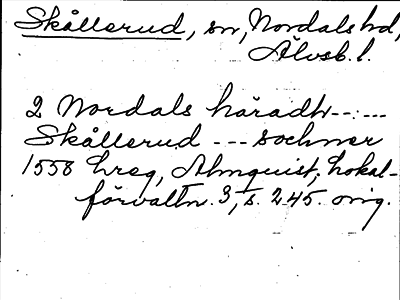 Skållerud, sn, Nordals hd,
Älvsb. l.
2 Nordals häradh --:---
Skållerud --- sochner
1558 hreg, Almquist, Lokal-
förvaltn. 3, s. 245. orig.